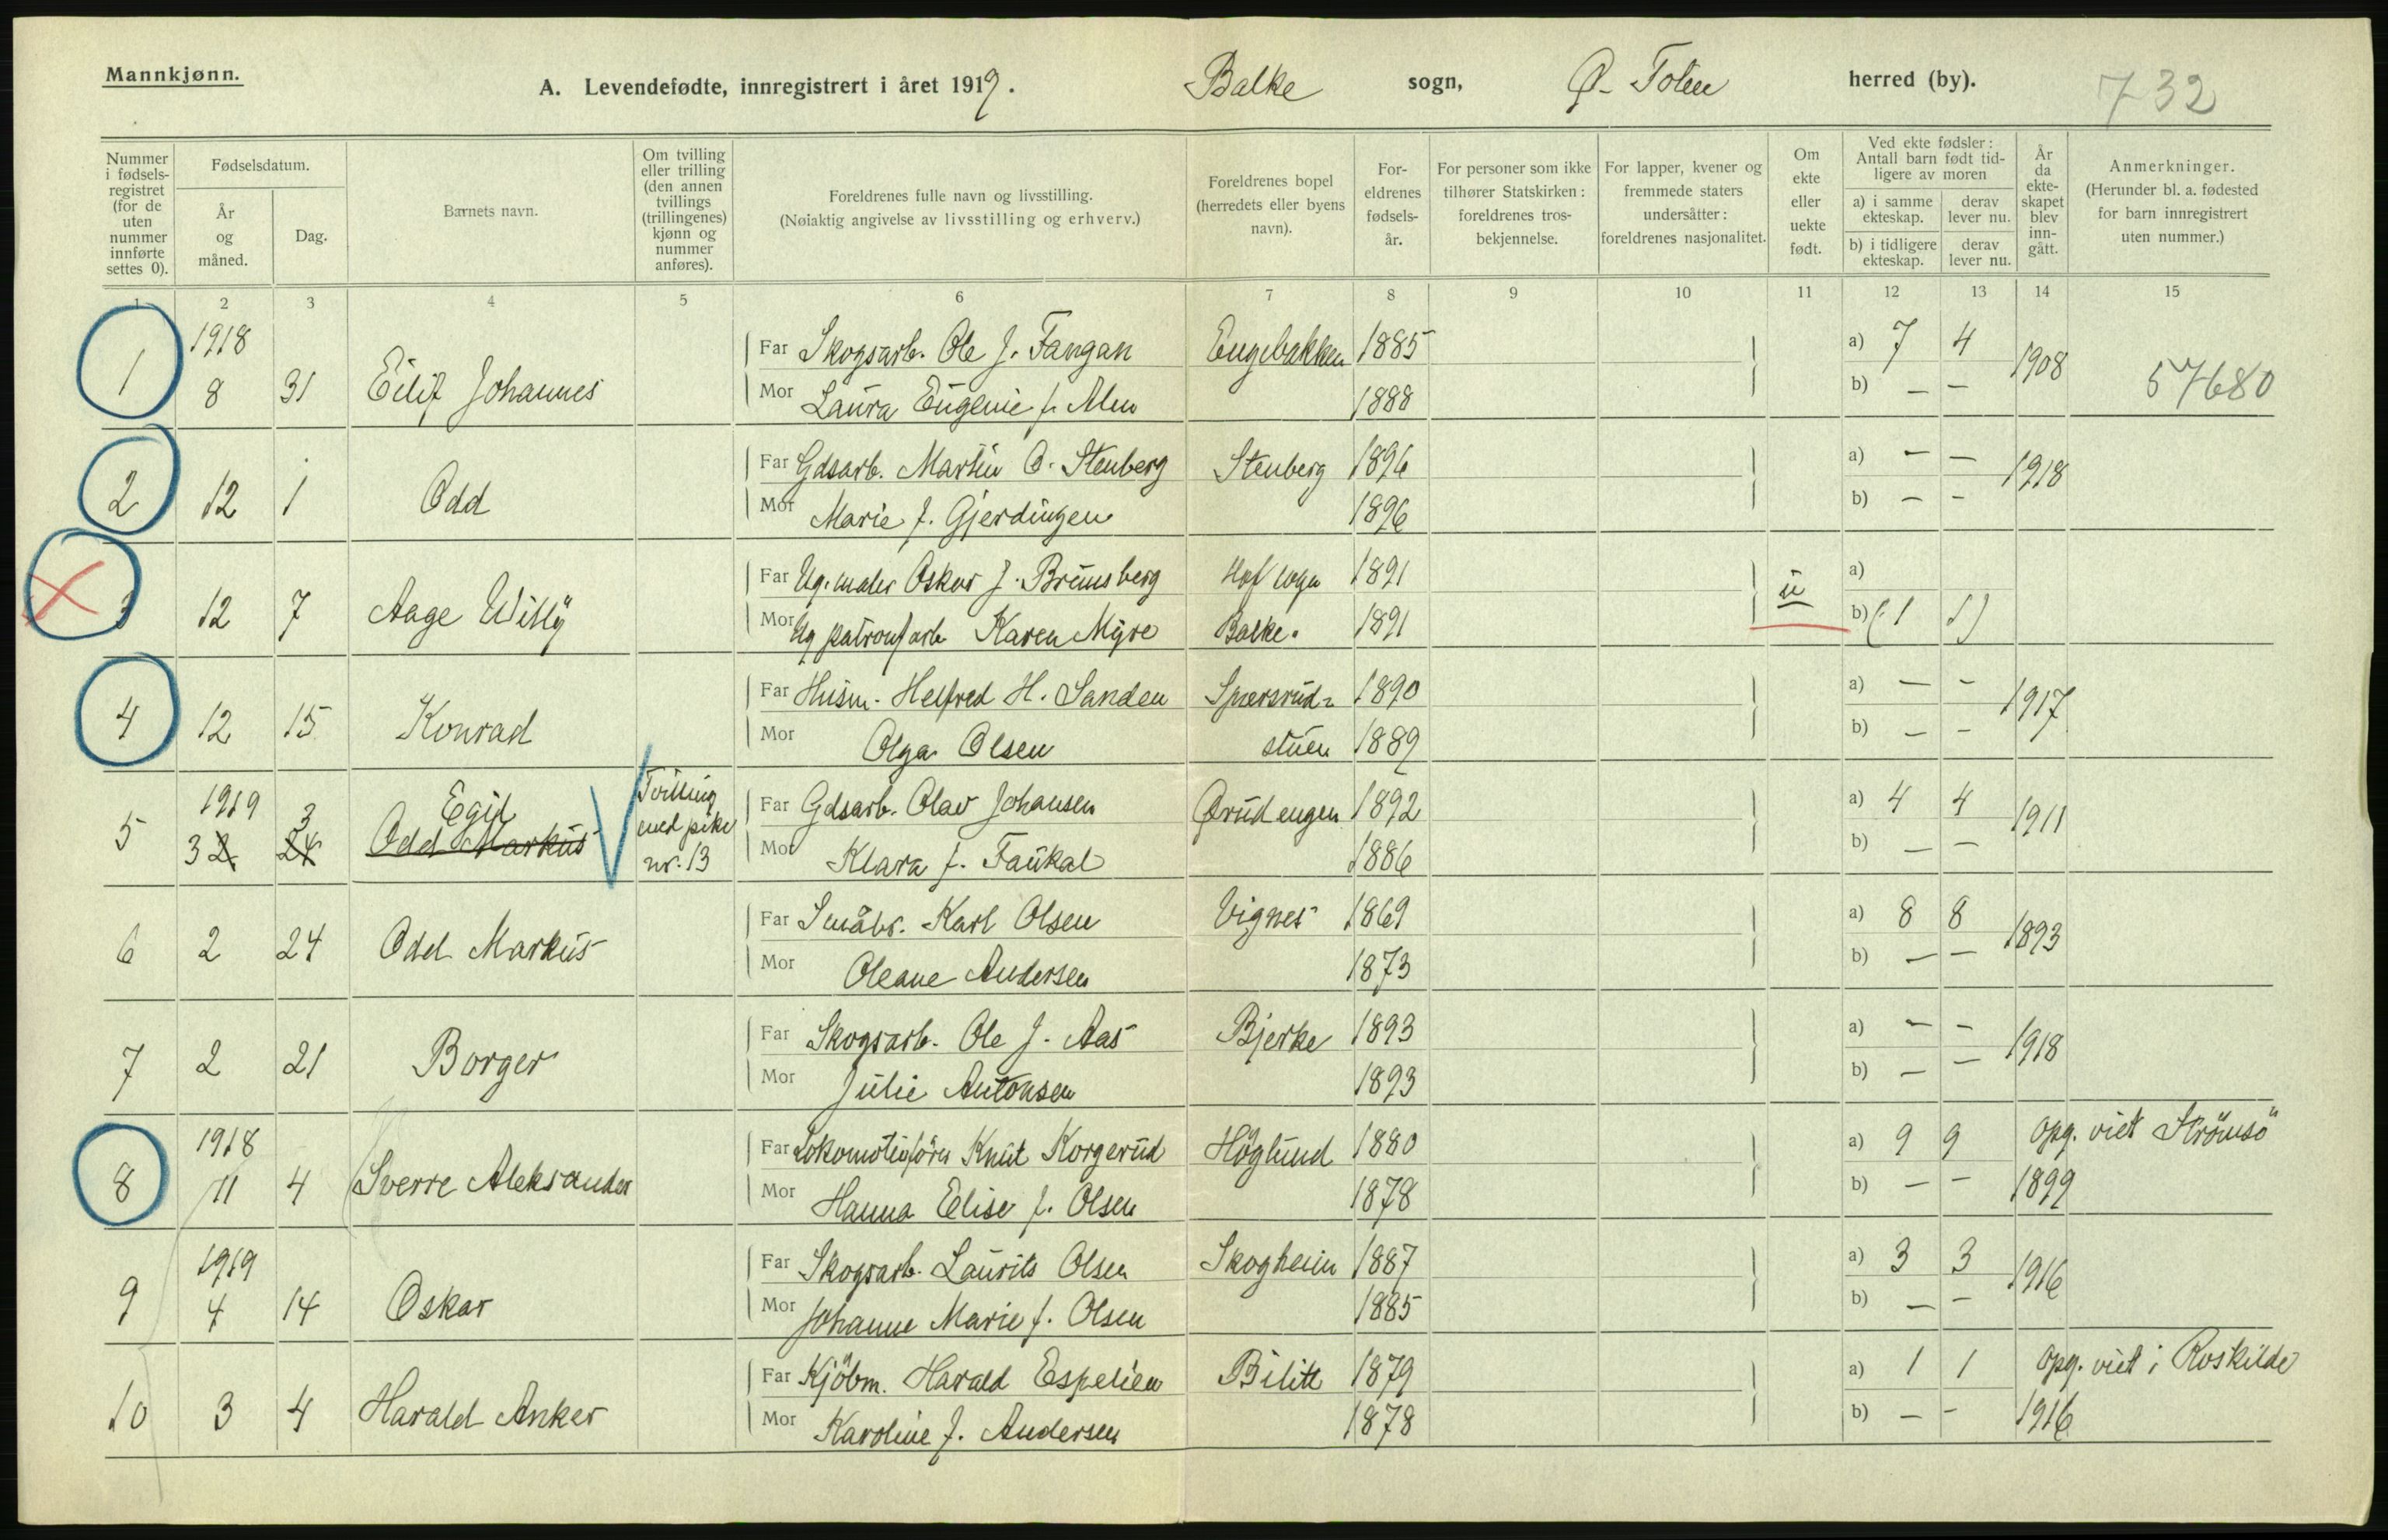 Mannkjønn.
A. Levendefødte, innregistrert i året 1919. Balke sogn, Ø. Toten herred (by). 732
Nummer i fødselsregistret (for de uten nummer innførte settes 0).
Fødselsdatum.
År og måned.
Dag.
Barnets navn.
Om tvilling eller trilling (den annen tvillings (trillingenes) kjønn og nummer anføres).
Foreldrenes fulle navn og livsstilling.
(Nøiaktig angivelse av livsstilling og erhverv.)
Foreldrenes bopel (herredets eller byens navn).
Foreldrenes fødselsår.
For personer som ikke tilhører Statskirken: foreldrenes trosbekjennelse.
For lapper, kvener og fremmede staters undersåtter: foreldrenes nasjonalitet.
Om ekte eller uekte født.
Ved ekte fødsler: Antall barn født tidligere av moren
a) i samme ekteskap.
derav lever nu.
b) i tidligere ekteskap.
derav lever nu.
År da ekteskapet blev inngått.
Anmerkninger.
(Herunder bl. a. fødested for barn innregistrert uten nummer.)
1 2 3 4 5 6 7 8 9 10 11 12 13 14 15
1918
Far Skogsarb. Ole J. Fangan Engebakken 1885 a) 7 4
1 8 31 Eilif Johannes 1908 57680
Mor Laura Eugenie f. Alm 1888 b) — —
Far Gdsarb. Martin O. Stenberg Stenberg 1896 a) — —
2 12 1 Odd 1918
Mor Marie f. Gjerdingen 1896 b) — —
Far Ug. maler Oskar J. Brunsberg Hof 1891 a)
3 12 7 Aage Willy u
Mor Ug patronfarb Karen Myre Balke. 1891 b) (1 1)
Far Husm. Helfred H. Sanden Spersrud- 1890 a) — —
4 12 15 Konrad 1917
Mor Olga Olsen stuen 1889 b) — —
1919 3 Egil Tvilling
Far Gdsarb. Olav Johansen Ørudengen 1892 a) 4 4
5 3 2 24 Odd Markus med pike nr. 13 1911
Mor Klara f. Faukal 1886 b) — —
Far Småbr. Karl Olsen Vignes 1869 a) 8 8
6 2 24 Odd Markus 1893
Mor Oleane Andersen 1873 b) — —
Far Skogsarb. Ole J. Aas Bjerke 1893 a) — —
7 2 21 Borger 1918
Mor Julie Antonsen 1893 b) — —
1918
Far Lokomotivförer Knut Korgerud Höglund 1880 a) 9 9 opg. viet Strömsö
8 11 4 Sverre Aleksander
Mor Hanna Elise f. Olsen 1878 b) — — 1899
1919
Far Skogsarb. Laurits Olsen Skogheim 1887 a) 3 3
9 4 14 Oskar 1916
Mor Johanne Marie f. Olsen 1885 b) — —
Far Kjöbm. Harald Espelien Bilitt 1879 a) 1 1 opg. viet i Roskilde
10 3 4 Harald Anker
Mor Karoline f. Andersen 1878 b) — — 1916